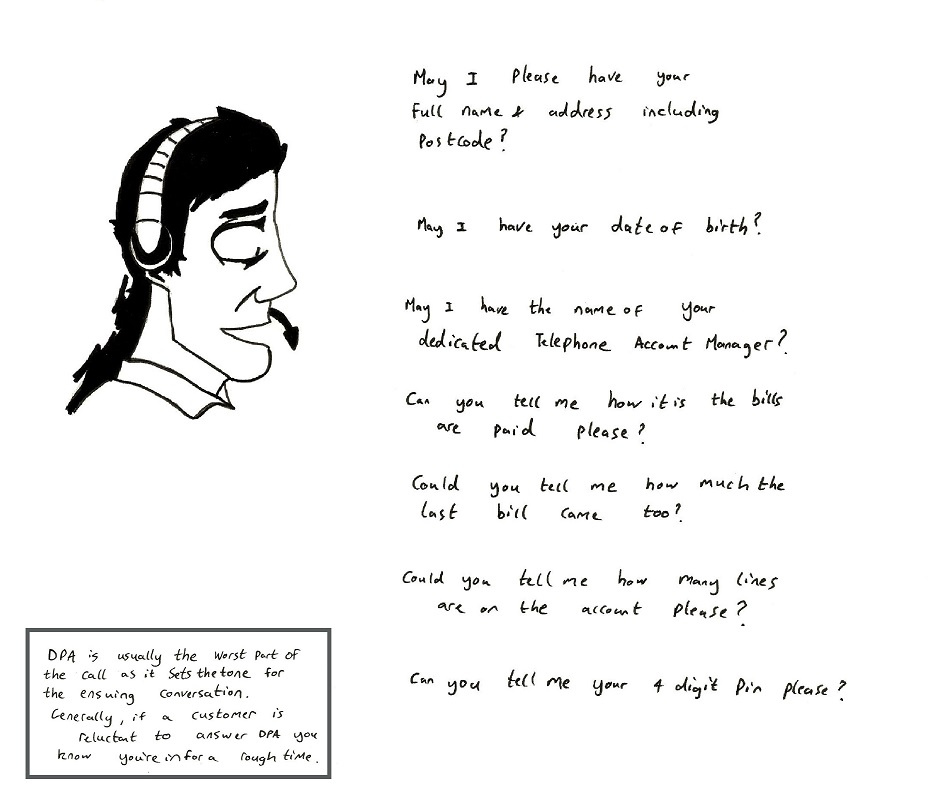 May I Please have your
Full name & address including
Postcode?
May I have your date of birth?
May I have the name of your
dedicated Telephone Account Manager?
Can you tell me how it is the bills
are paid please?
Could you tell me how much the
last bill came too?
Could you tell me how many lines
are on the account please?
Can you tell me your 4 digit Pin please?
DPA is usually the worst part of
the call as it sets the tone for
the ensuing conversation.
Generally, if a customer is
reluctant to answer DPA you
know you're in for a rough time.